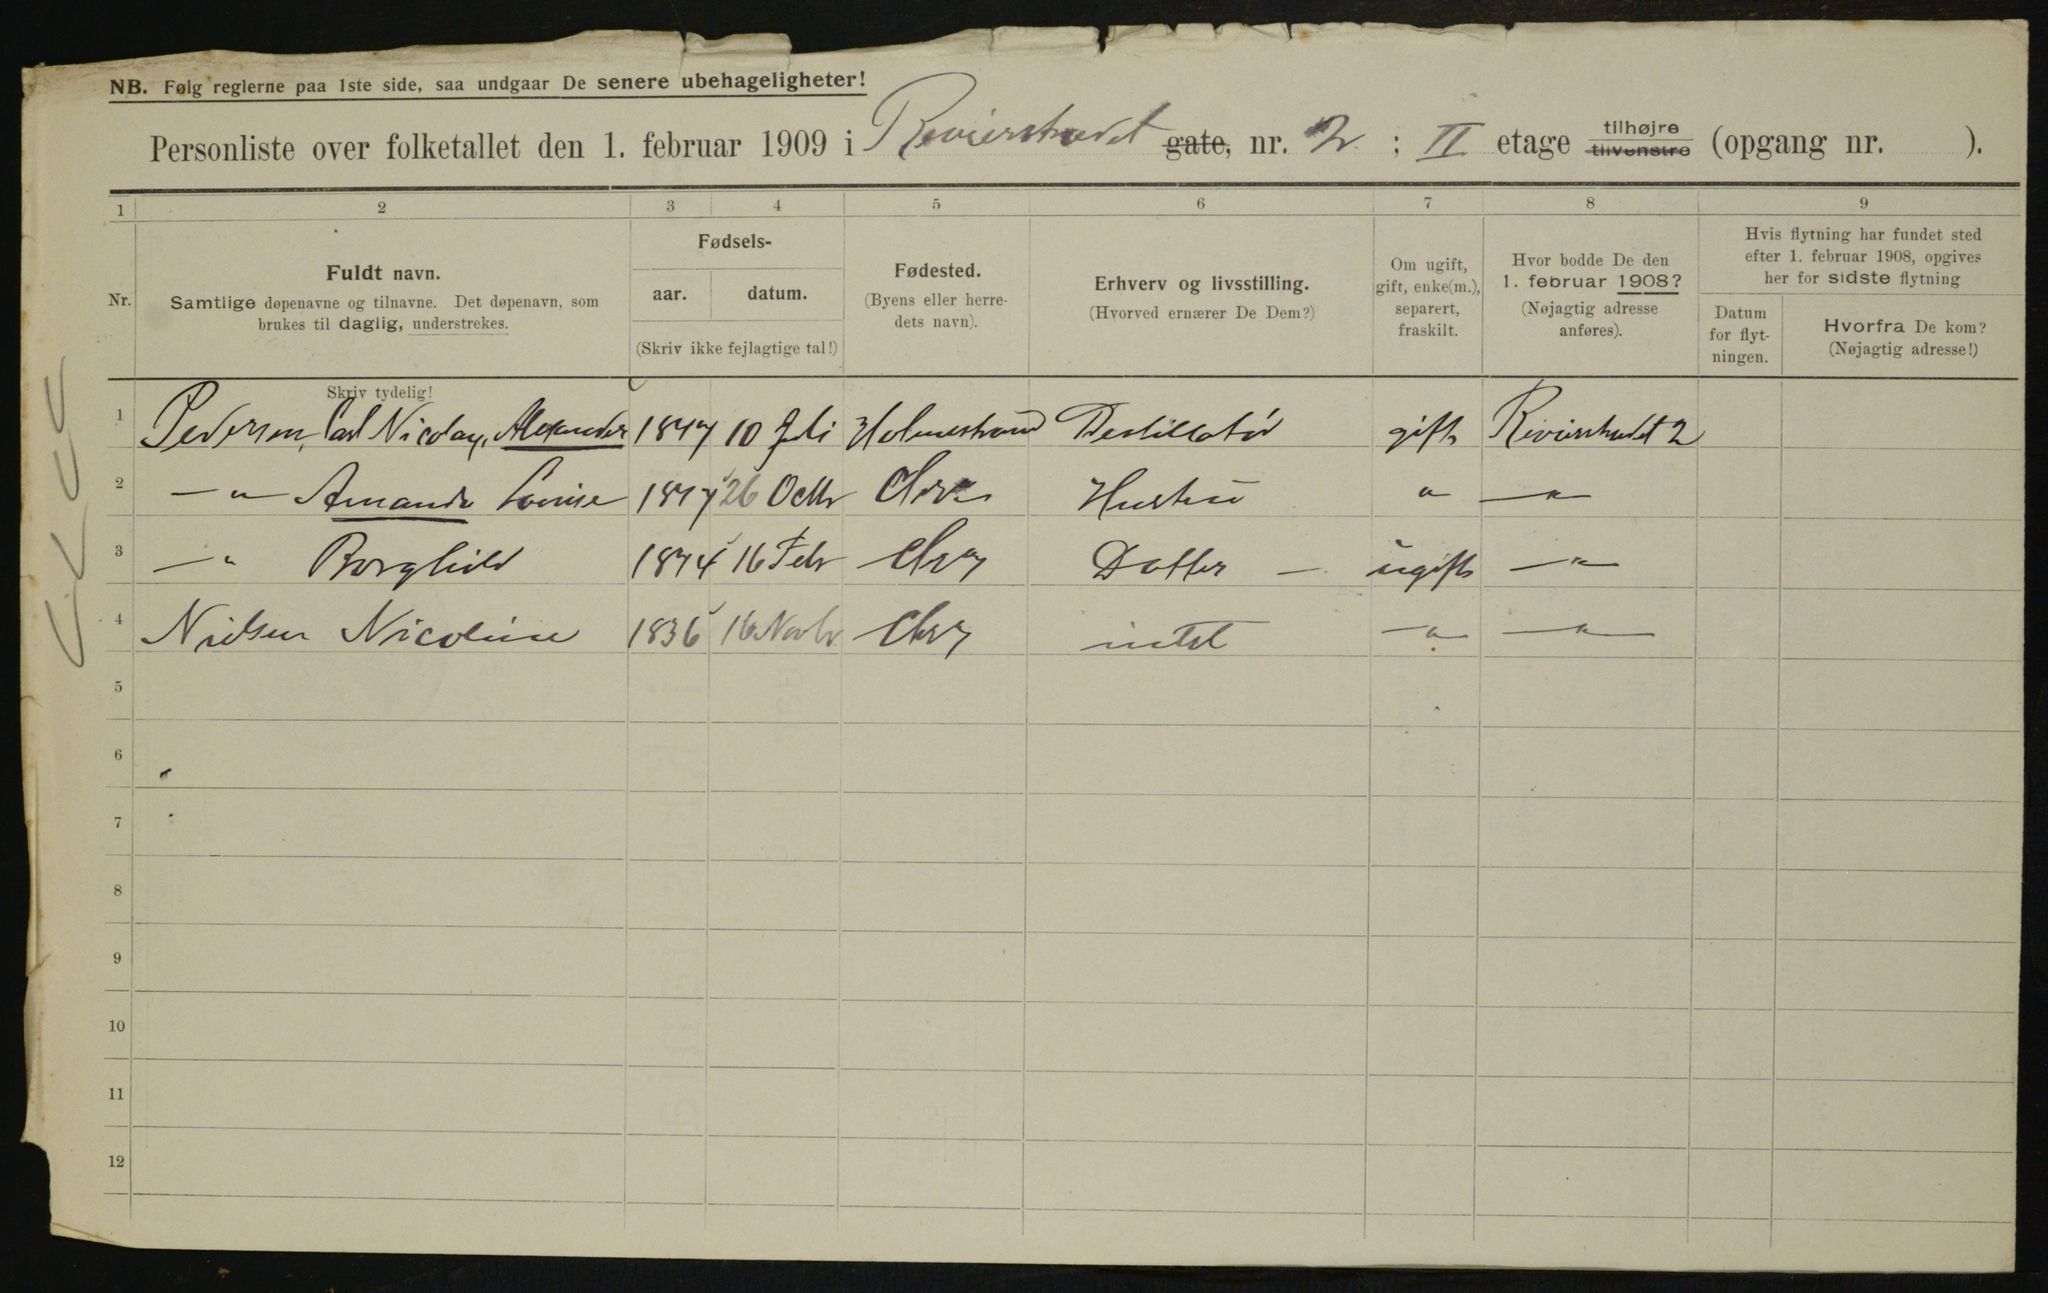 NB. Følg reglerne paa 1ste side, saa undgaar De senere ubehageligheter!
Personliste over folketallet den 1. februar 1909 i Revierstredet gate, nr. 2 ; II etage tilhøjre tilvenstre (opgang nr. ).
1 2 3 4 5 6 7 8 9
Nr.
Fuldt navn.
Samtlige døpenavne og tilnavne. Det døpenavn, som
brukes til daglig, understrekes.
Skriv tydelig!
Fødsels-
aar. datum.
(Skriv ikke fejlagtige tal!)
Fødested.
(Byens eller herre-
dets navn).
Erhverv og livsstilling.
(Hvorved ernærer De Dem?)
Om ugift,
gift, enke(m.),
separert,
fraskilt.
Hvor bodde De den
1. februar 1908?
(Nøjagtig adresse
anføres).
Hvis flytning har fundet sted
efter 1. februar 1908, opgives
her for sidste flytning
Datum
for flyt-
ningen.
Hvorfra De kom?
(Nøjagtig adresse!)
1 Pedersen, Carl Nicolay, Alexander 1847 10 Juli Holmestrand Destillatør gift Revierstredet 2
2 — " — Amanda Louise 26 Octbr Hustru " — " —
3 — " Borghild 1874 16 Febr Chra Datter — ugift — " —
4 Nielsen Nicoline 1836 16 Novbr Chra intet — " — — " —
5
6
7
8
9
10
11
12